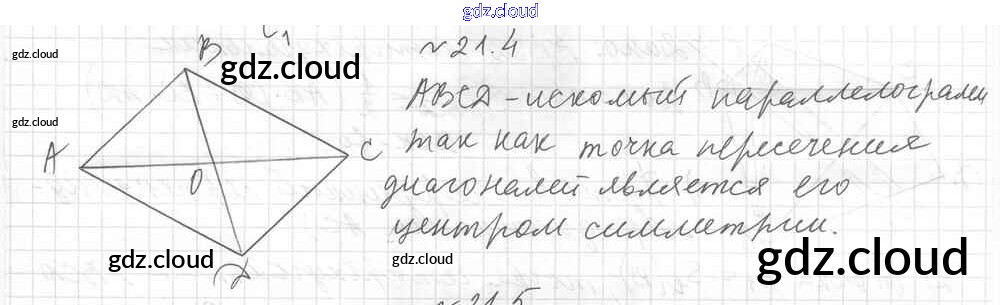 gdz.cloud
№ 21.4
gdz.cloud
gdz.cloud
B
ABCD - искомый параллелограмм
gdz.cloud
так как точка пересечения
A
C
O
диагоналей является его
центром симметрии.
gdz.cloud
gdz.cloud
gdz.cloud
D
№ 21.5